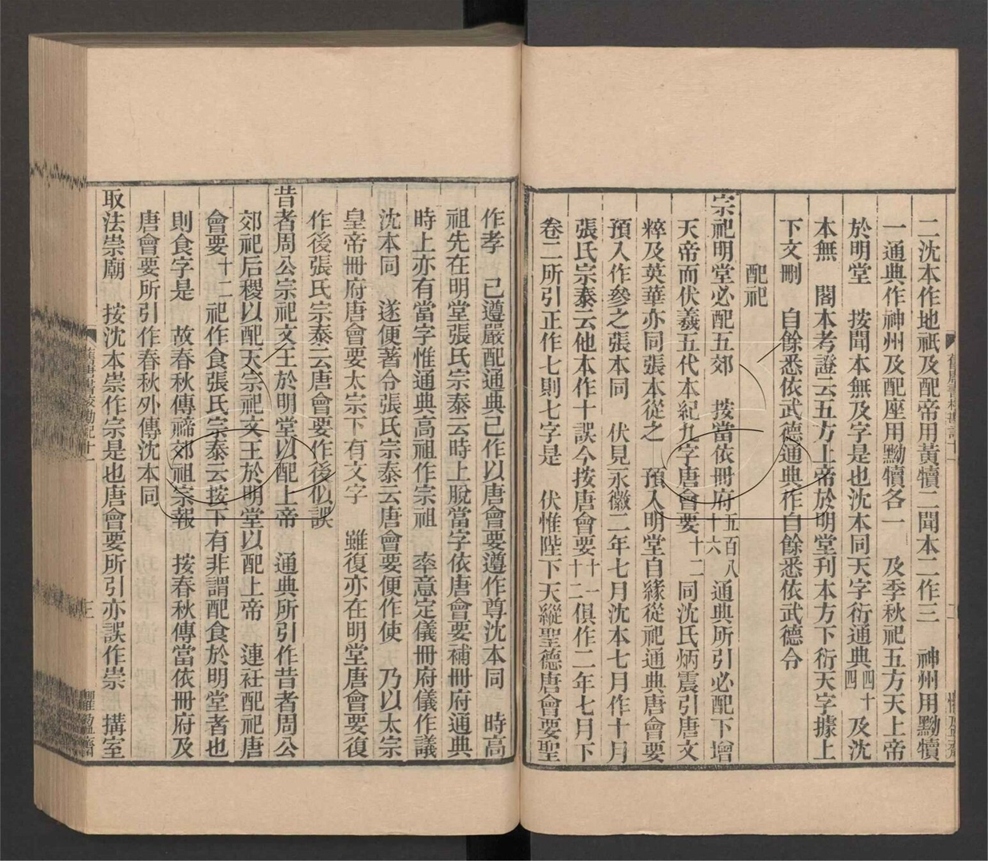 二沈本作地祇及配帝用黃犢二聞本二作三　神州用黝犢
一通典作神州及配座用黝犢各一　及季秋祀五方天上帝
於明堂　按聞本無及字是也沈本同天字衍通典四十四　及沈
本無　閣本考證云五方上帝於明堂刊本方下衍天字據上
下文刪　自餘悉依武德通典作自餘悉依武德令
配祀
宗祀明堂必配五郊　按當依冊府五百八十六通典所引必配下增
天帝而伏羲五代本紀九字唐會要十二同沈氏炳震引唐文
粹及英華亦同張本從之　預入明堂自緣從祀通典唐會要
預入作參之張本同　伏見永徽二年七月沈本七月作十月
張氏宗泰云他本作十誤今按唐會要十一十二俱作二年七月下
卷二所引正作七則七字是　伏惟陛下天縱聖德唐會要聖
作孝　已遵嚴配通典已作以唐會要遵作尊沈本同　時高
祖先在明堂張氏宗泰云時上脫當字依唐會要補冊府通典
時上亦有當字惟通典高祖作宗祖　率意定儀冊府儀作議
沈本同　遂便著令張氏宗泰云唐會要便作使　乃以太宗
皇帝冊府唐會要太宗下有文字　雖復亦在明堂唐會要復
作後張氏宗泰云唐會要作後似誤
昔者周公宗祀文王於明堂以配上帝　通典所引作昔者周公
郊祀后稷以配天宗祀文王於明堂以配上帝　連社配祀唐
會要十二祀作食張氏宗泰云按下有非謂配食於明堂者也
則食字是　故春秋傳禘郊祖宗報　按春秋傳當依冊府及
唐會要所引作春秋外傳沈本同
取法崇廟　按沈本崇作宗是也唐會要所引亦誤作崇　搆室